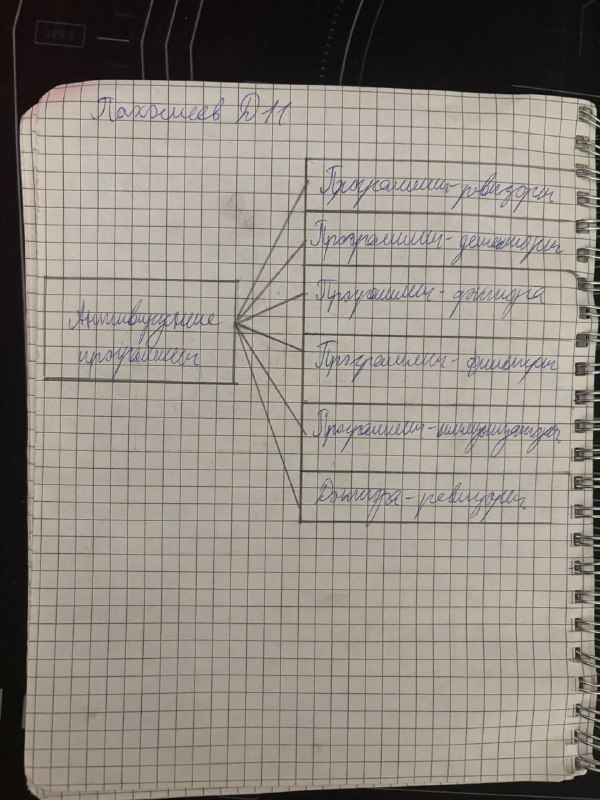 Пахомеев Д11
Антивирусные
программы
Программы-ревизоры
Программы-детекторы
Программы-доктора
Программы-фильтры
Программы-иммунизаторы
Доктора-ревизоры